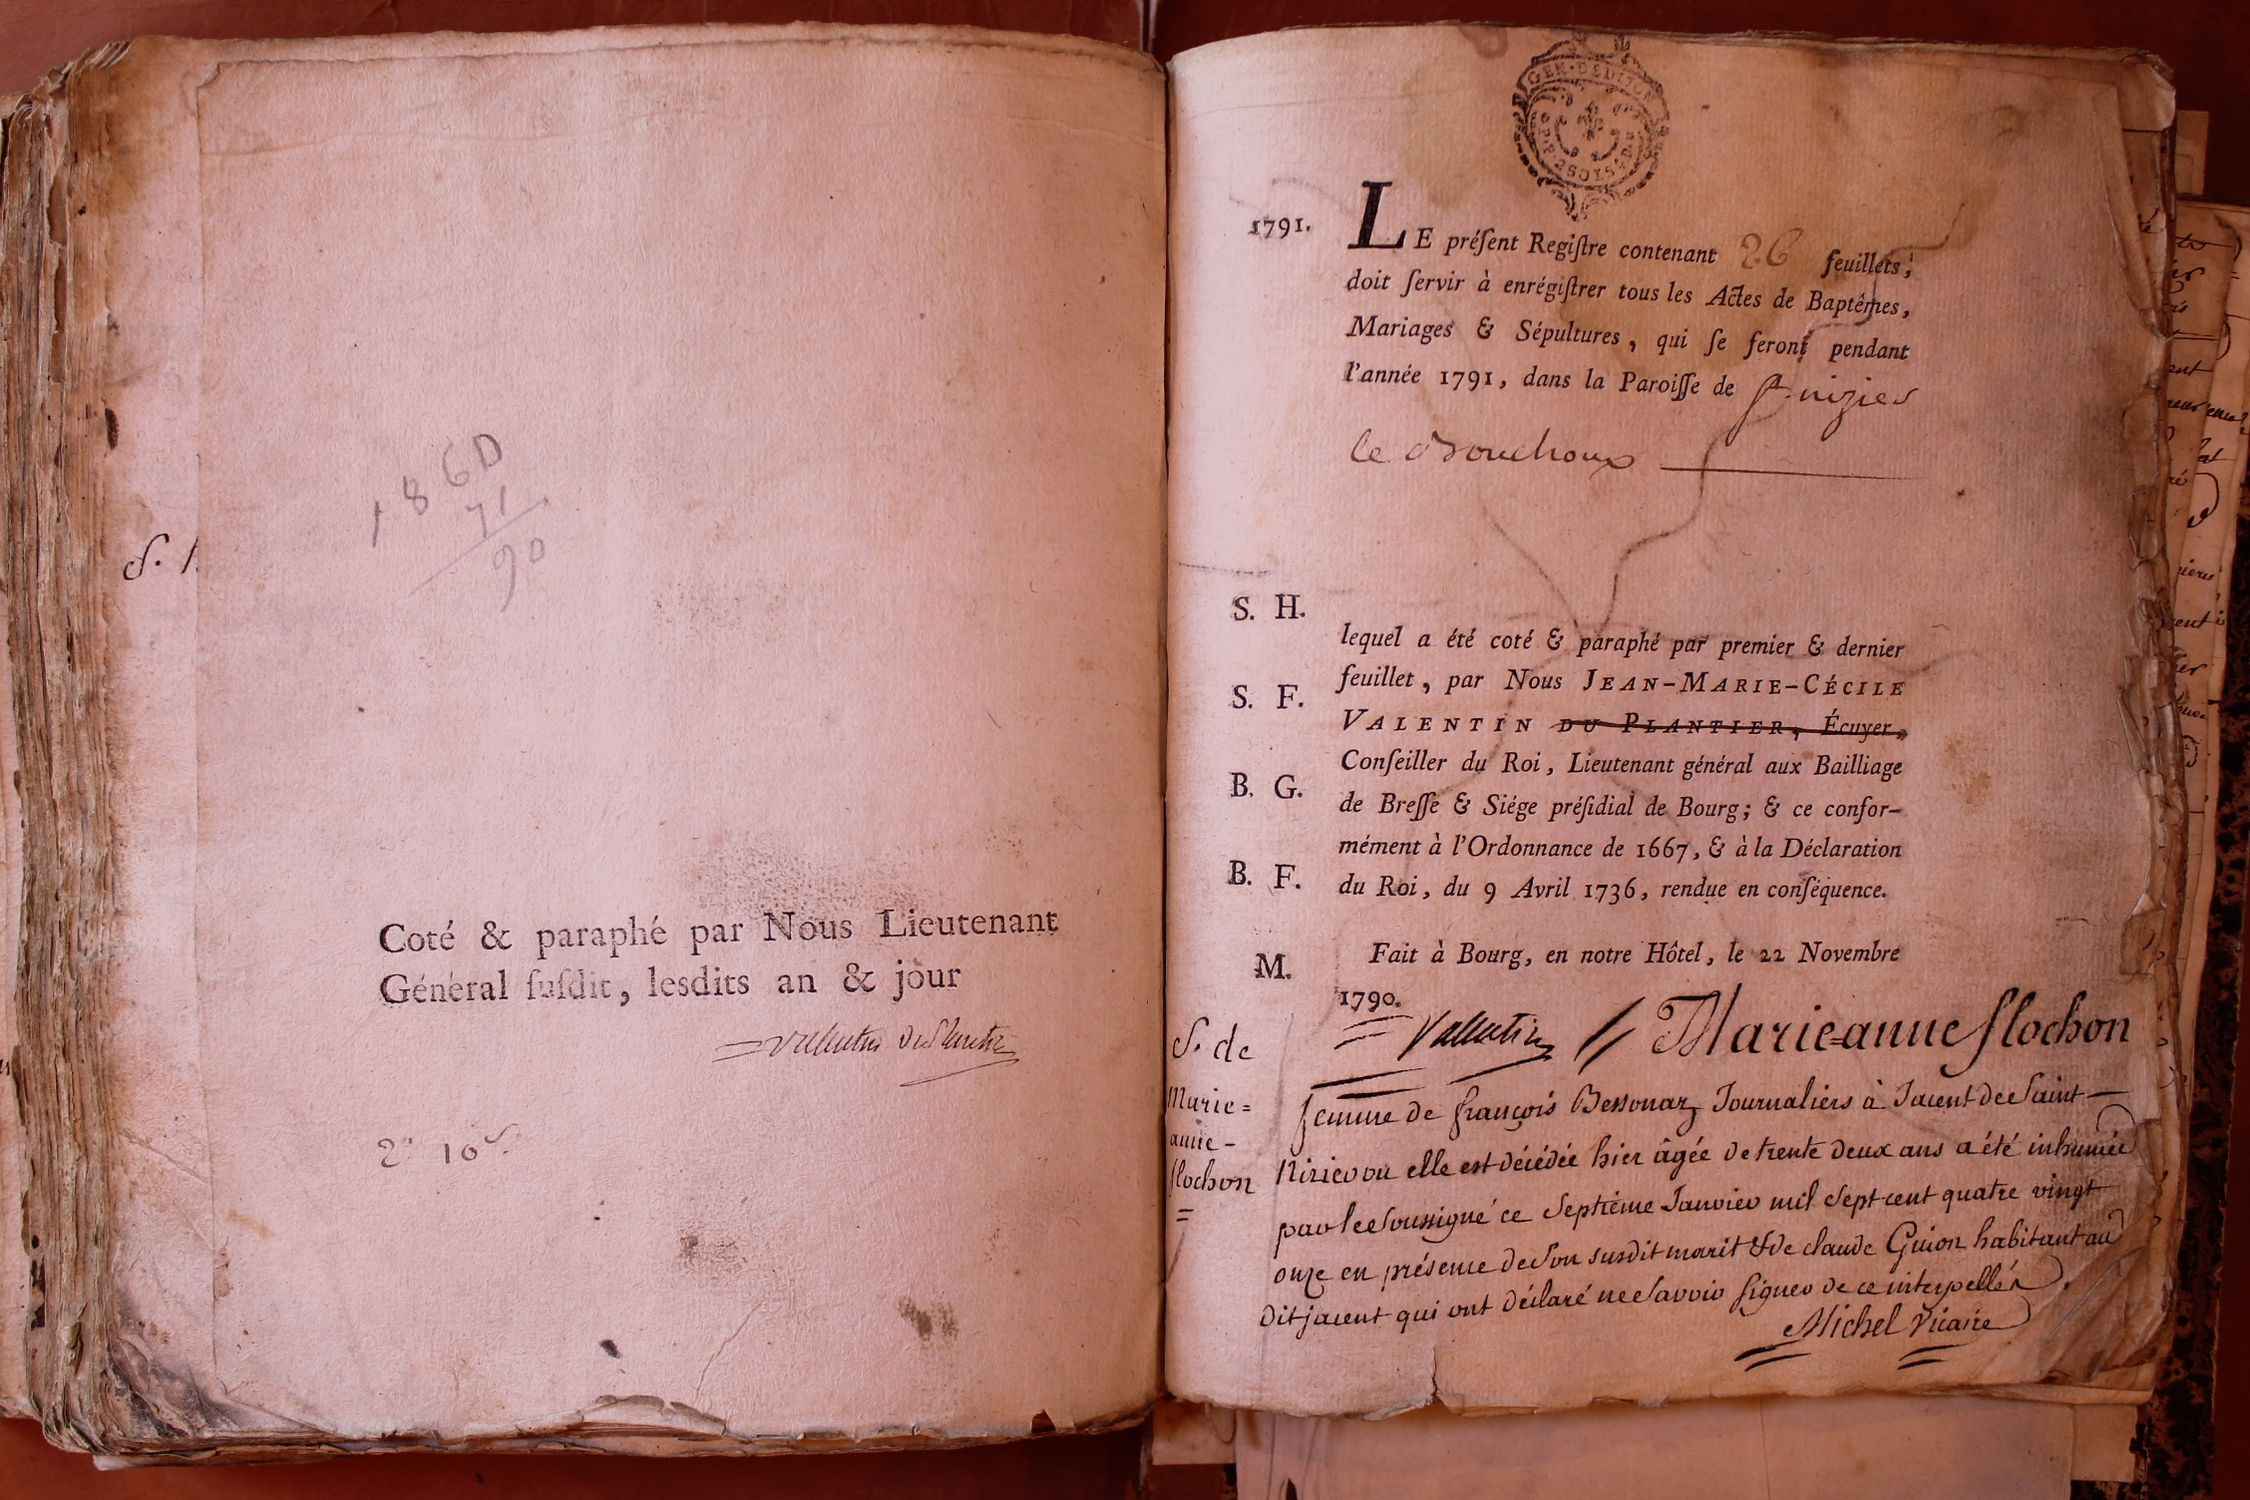 S.
1860
71
90
Coté & paraphé par Nous Lieutenant
Général ſuſdit, lesdits an & jour
Valentin DuPlantier
2# 10s
GEN. DE DIJON
1791.
LE préſent Regiſtre contenant 26 feuillets,
doit ſervir à enrégiſtrer tous les Actes de Baptêmes,
Mariages & Sépultures, qui ſe feront pendant
l'année 1791, dans la Paroiſſe de St. nizier
le Bouchoux
S. H.
S. F.
B. G.
B. F.
M.
lequel a été coté & paraphé par premier & dernier
feuillet, par Nous JEAN-MARIE-CÉCILE
VALENTIN DU PLANTIER, Écuyer,
Conſeiller du Roi, Lieutenant général aux Bailliage
de Breſſe & Siége préſidial de Bourg; & ce confor-
mément à l'Ordonnance de 1667, & à la Déclaration
du Roi, du 9 Avril 1736, rendue en conſéquence.
Fait à Bourg, en notre Hôtel, le 22 Novembre
1790.
Valentin
S. de
Marie=
anne-
flochon
Marie=anne flochon
femme de françois Bessonaz Journaliers à Jacent de Saint-
Nizier ou elle est décédée hier âgée de trente deux ans a été inhumée
par le Soussigné ce Septième Janvier mil Sept cent quatre vingt
onze en présence de Son susdit marit & de claude Guion habitant au
dit jacent qui ont déclaré ne Savoir Signer de ce interpellés
Michel Vicaire